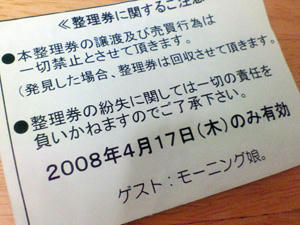 ≪整理券に関するご注意
●本整理券の譲渡及び売買行為は
一切禁止とさせて頂きます。
(発見した場合、整理券は回収させて頂きます。
●整理券の紛失に関しては一切の責任を
負いかねますのでご了承下さい。
2008年4月17日(木)のみ有効
ゲスト:モーニング娘。